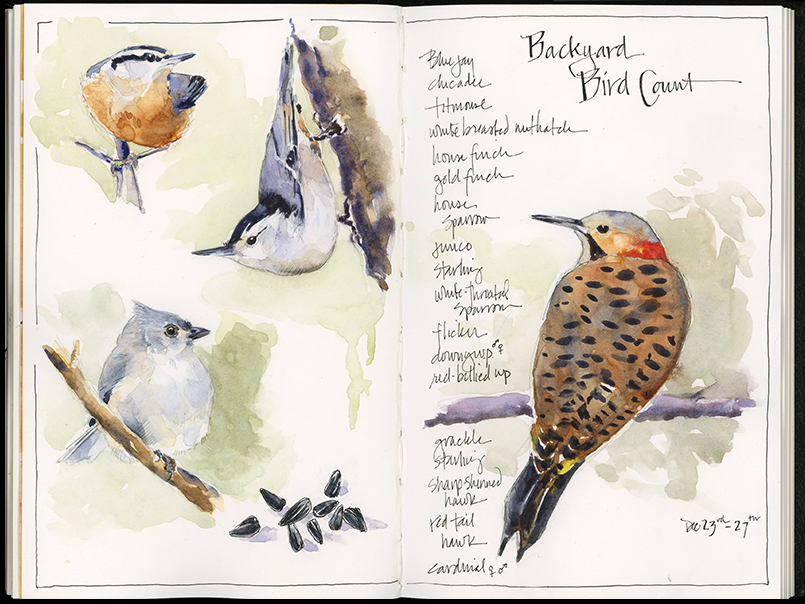 Backyard
Bird Count
Blue Jay
chicadee
titmouse
white breasted nuthatch
house finch
gold finch
house
sparrow
junco
starling
white-throated
sparrow
flicker
downy wp ♂♀
red-bellied wp
grackle
starling
sharp shinned
hawk
red tail
hawk
cardinal ♀♂
Dec 23rd-27th